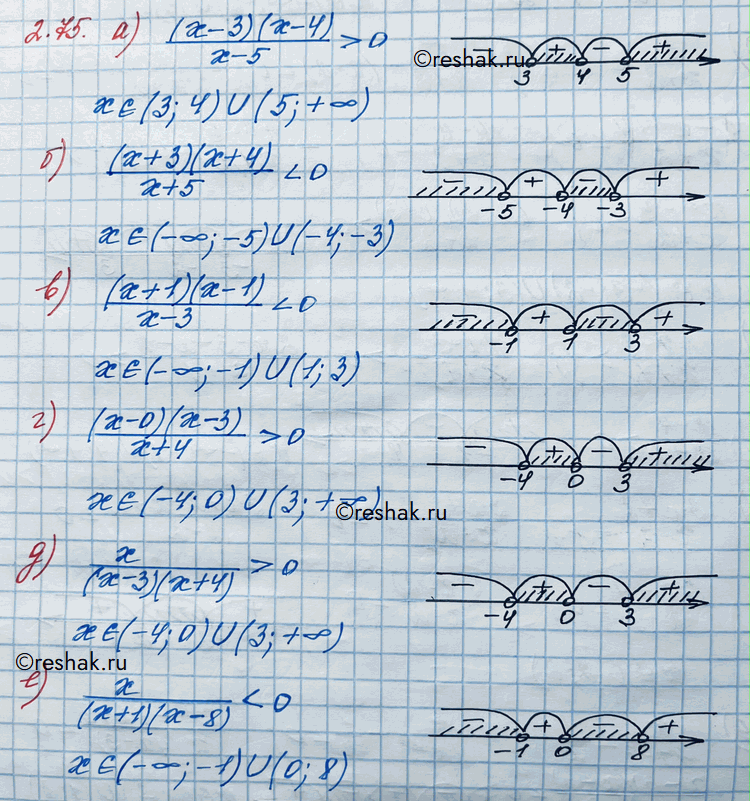 2.75. а) (x-3)(x-4)/x-5 > 0
- + - +
3 4 5
©reshak.ru
x∈(3; 4)∪(5; +∞)
б) (x+3)(x+4)/x+5 < 0
- + - +
-5 -4 -3
x∈(-∞; -5)∪(-4; -3)
в) (x+1)(x-1)/x-3 < 0
- + - +
-1 1 3
x∈(-∞; -1)∪(1; 3)
г) (x-0)(x-3)/x+4 > 0
- + - +
-4 0 3
x∈(-4; 0)∪(3; +∞)
©reshak.ru
д) x/(x-3)(x+4) > 0
- + - +
-4 0 3
x∈(-4; 0)∪(3; +∞)
©reshak.ru
е) x/(x+1)(x-8) < 0
- + - +
-1 0 8
x∈(-∞; -1)∪(0; 8)